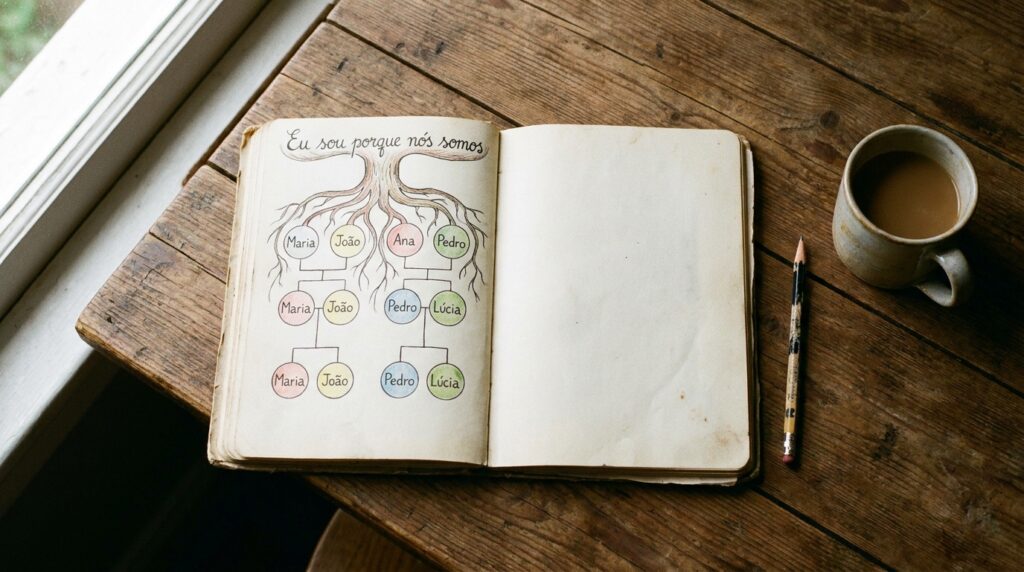 Eu sou porque nós somos
Maria João Ana Pedro
Maria João Pedro Lúcia
Maria João Pedro Lúcia